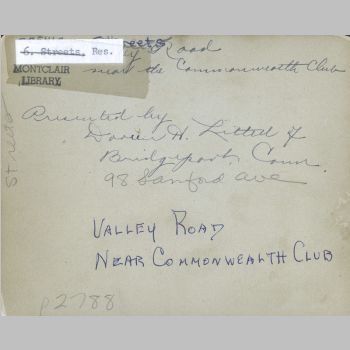 6. Streets, Res.
Streets
MONTCLAIR
LIBRARY
Road
near the Commonwealth Club
Presented by
H. Litted of
Bridgeport, Conn.
98 Sanford Ave
Streets
VALLEY ROAD
NEAR COMMONWEALTH CLUB
p2788